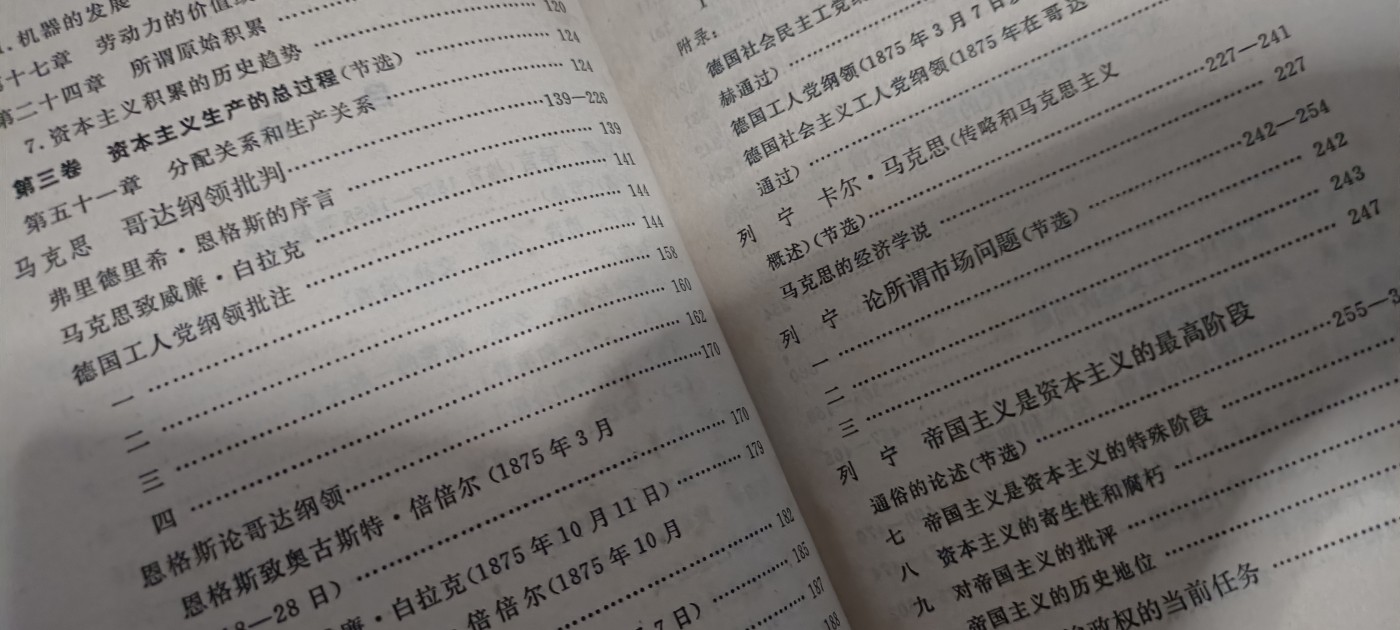 机器的发展
十七章 劳动力的价值
第二十四章 所谓原始积累 120
7. 资本主义积累的历史趋势 124
第三卷 资本主义生产的总过程(节选) 124
第五十一章 分配关系和生产关系
马克思 哥达纲领批判 139—226
弗里德里希·恩格斯的序言 139
马克思致威廉·白拉克 141
德国工人党纲领批注 144
一 144
二 158
三 160
四 162
恩格斯论哥达纲领 170
恩格斯致奥古斯特·倍倍尔(1875年3月
—28日) 170
·白拉克(1875年10月11日) 179
倍倍尔(1875年10月
7日) 182
185
187
188
附录:
德国社会民主工党纲
赫通过)
德国工人党纲领(1875年3月7日
德国社会主义工人党纲领(1875年在哥达
通过)
列宁 卡尔·马克思(传略和马克思主义
概述)(节选) 227—241
马克思的经济学说 227
列宁 论所谓市场问题(节选) 242—254
一 242
二 243
三 247
列宁 帝国主义是资本主义的最高阶段
通俗的论述(节选) 255—3
七 帝国主义是资本主义的特殊阶段
八 资本主义的寄生性和腐朽
九 对帝国主义的批评
帝国主义的历史地位
政权的当前任务